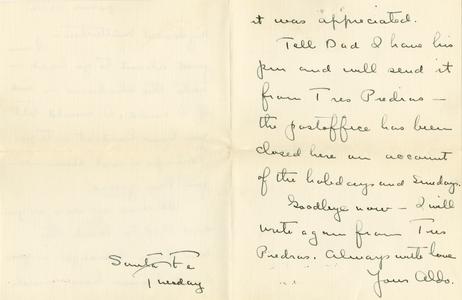 it was appreciated.
Tell Dad I have his
pin and will send it
from Tres Piedras —
the postoffice has been
closed here on account
of the holidays and Sundays.
Goodbye now — I will
write again from Tres
Piedras. Always with love
Your Aldo.
Santa Fe
Tuesday